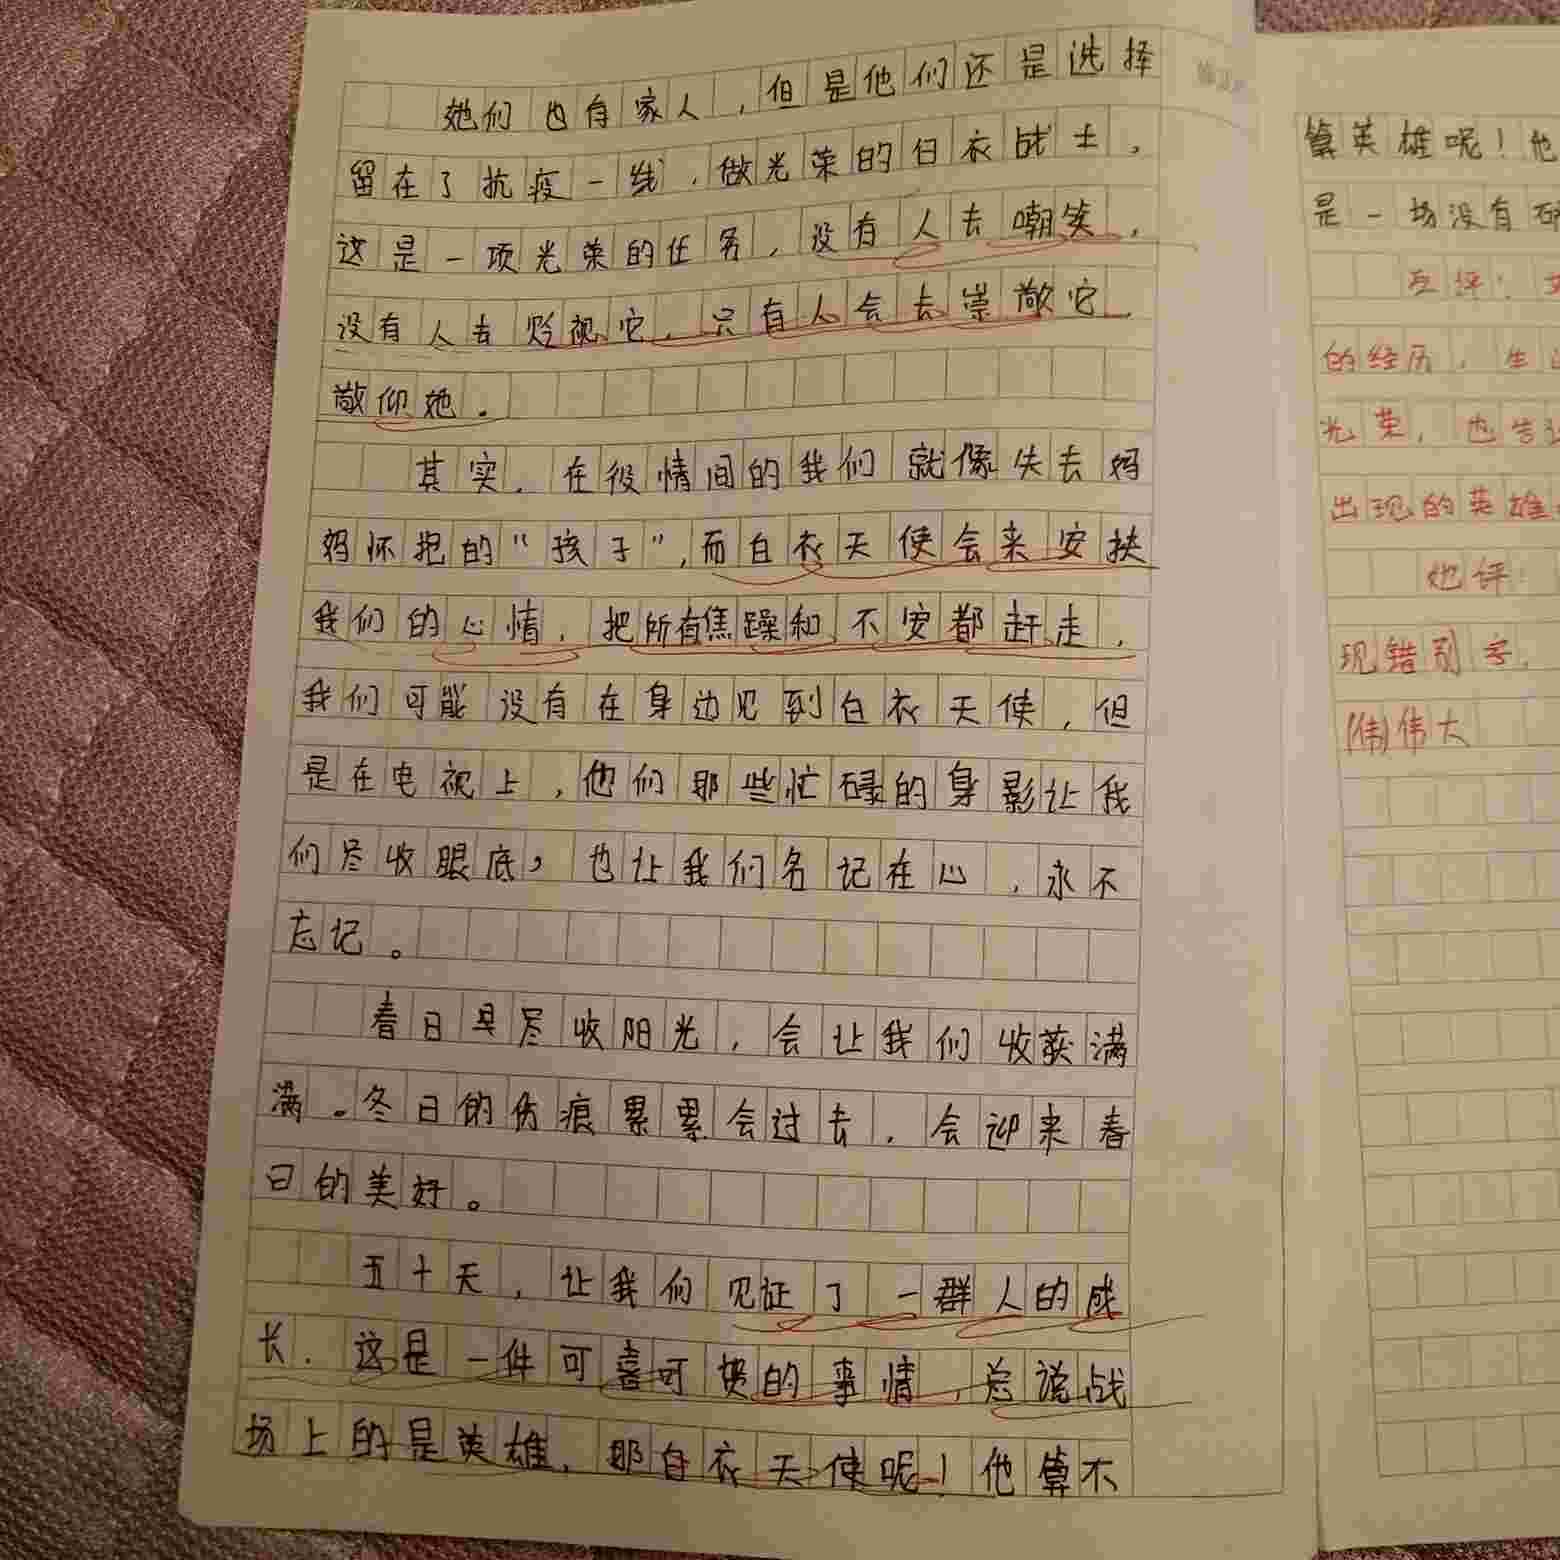 她们也有家人，但是他们还是选择
留在了抗疫一线，做光荣的白衣战士，
这是一项光荣的任务，没有人去嘲笑，
没有人去贬视它，只有人会去崇敬它，
敬仰她。
其实，在役情间的我们就像失去妈
妈怀抱的“孩子”，而白衣天使会来安抚
我们的心情，把所有焦躁和不安都赶走，
我们可能没有在身边见到白衣天使，但
是在电视上，他们那些忙碌的身影让我
们尽收眼底，也让我们名记在心，永不
忘记。
春日早尽收阳光，会让我们收获满
满。冬日的伤痕累累会过去，会迎来春
日的美好。
五十天，让我们见证了一群人的成
长．这是一件可喜可贺的事情，总说战
场上的是英雄，那白衣天使呢！他算不
算英雄呢！他
是一场没有
互评：
的经历，生
光荣，也告
出现的英雄
她评：
现错别字，
(伟)伟大